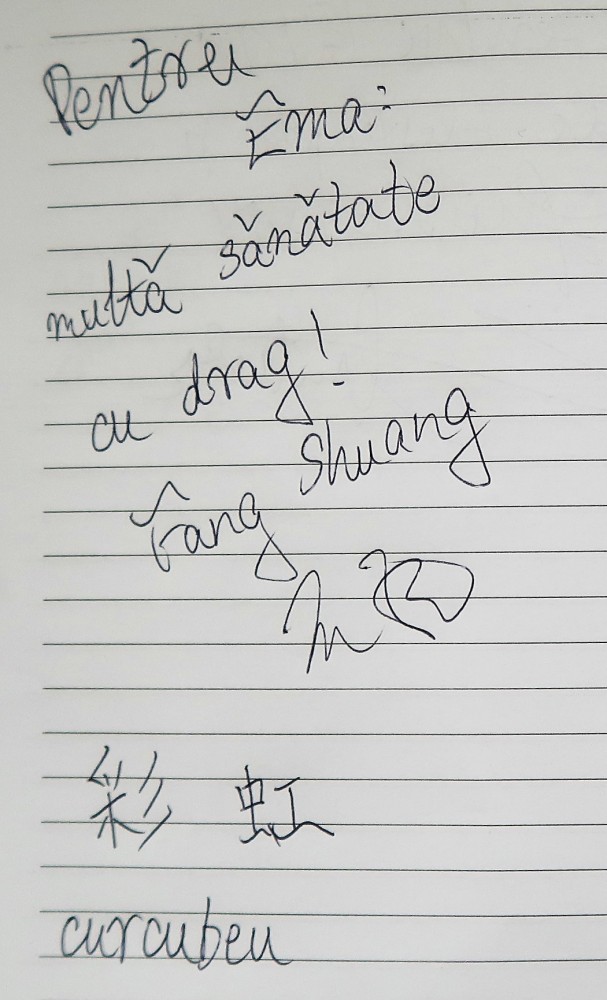 Pentru
Ema:
multă sănătate
cu drag!
Fang Shuang
彩虹
curcubeu